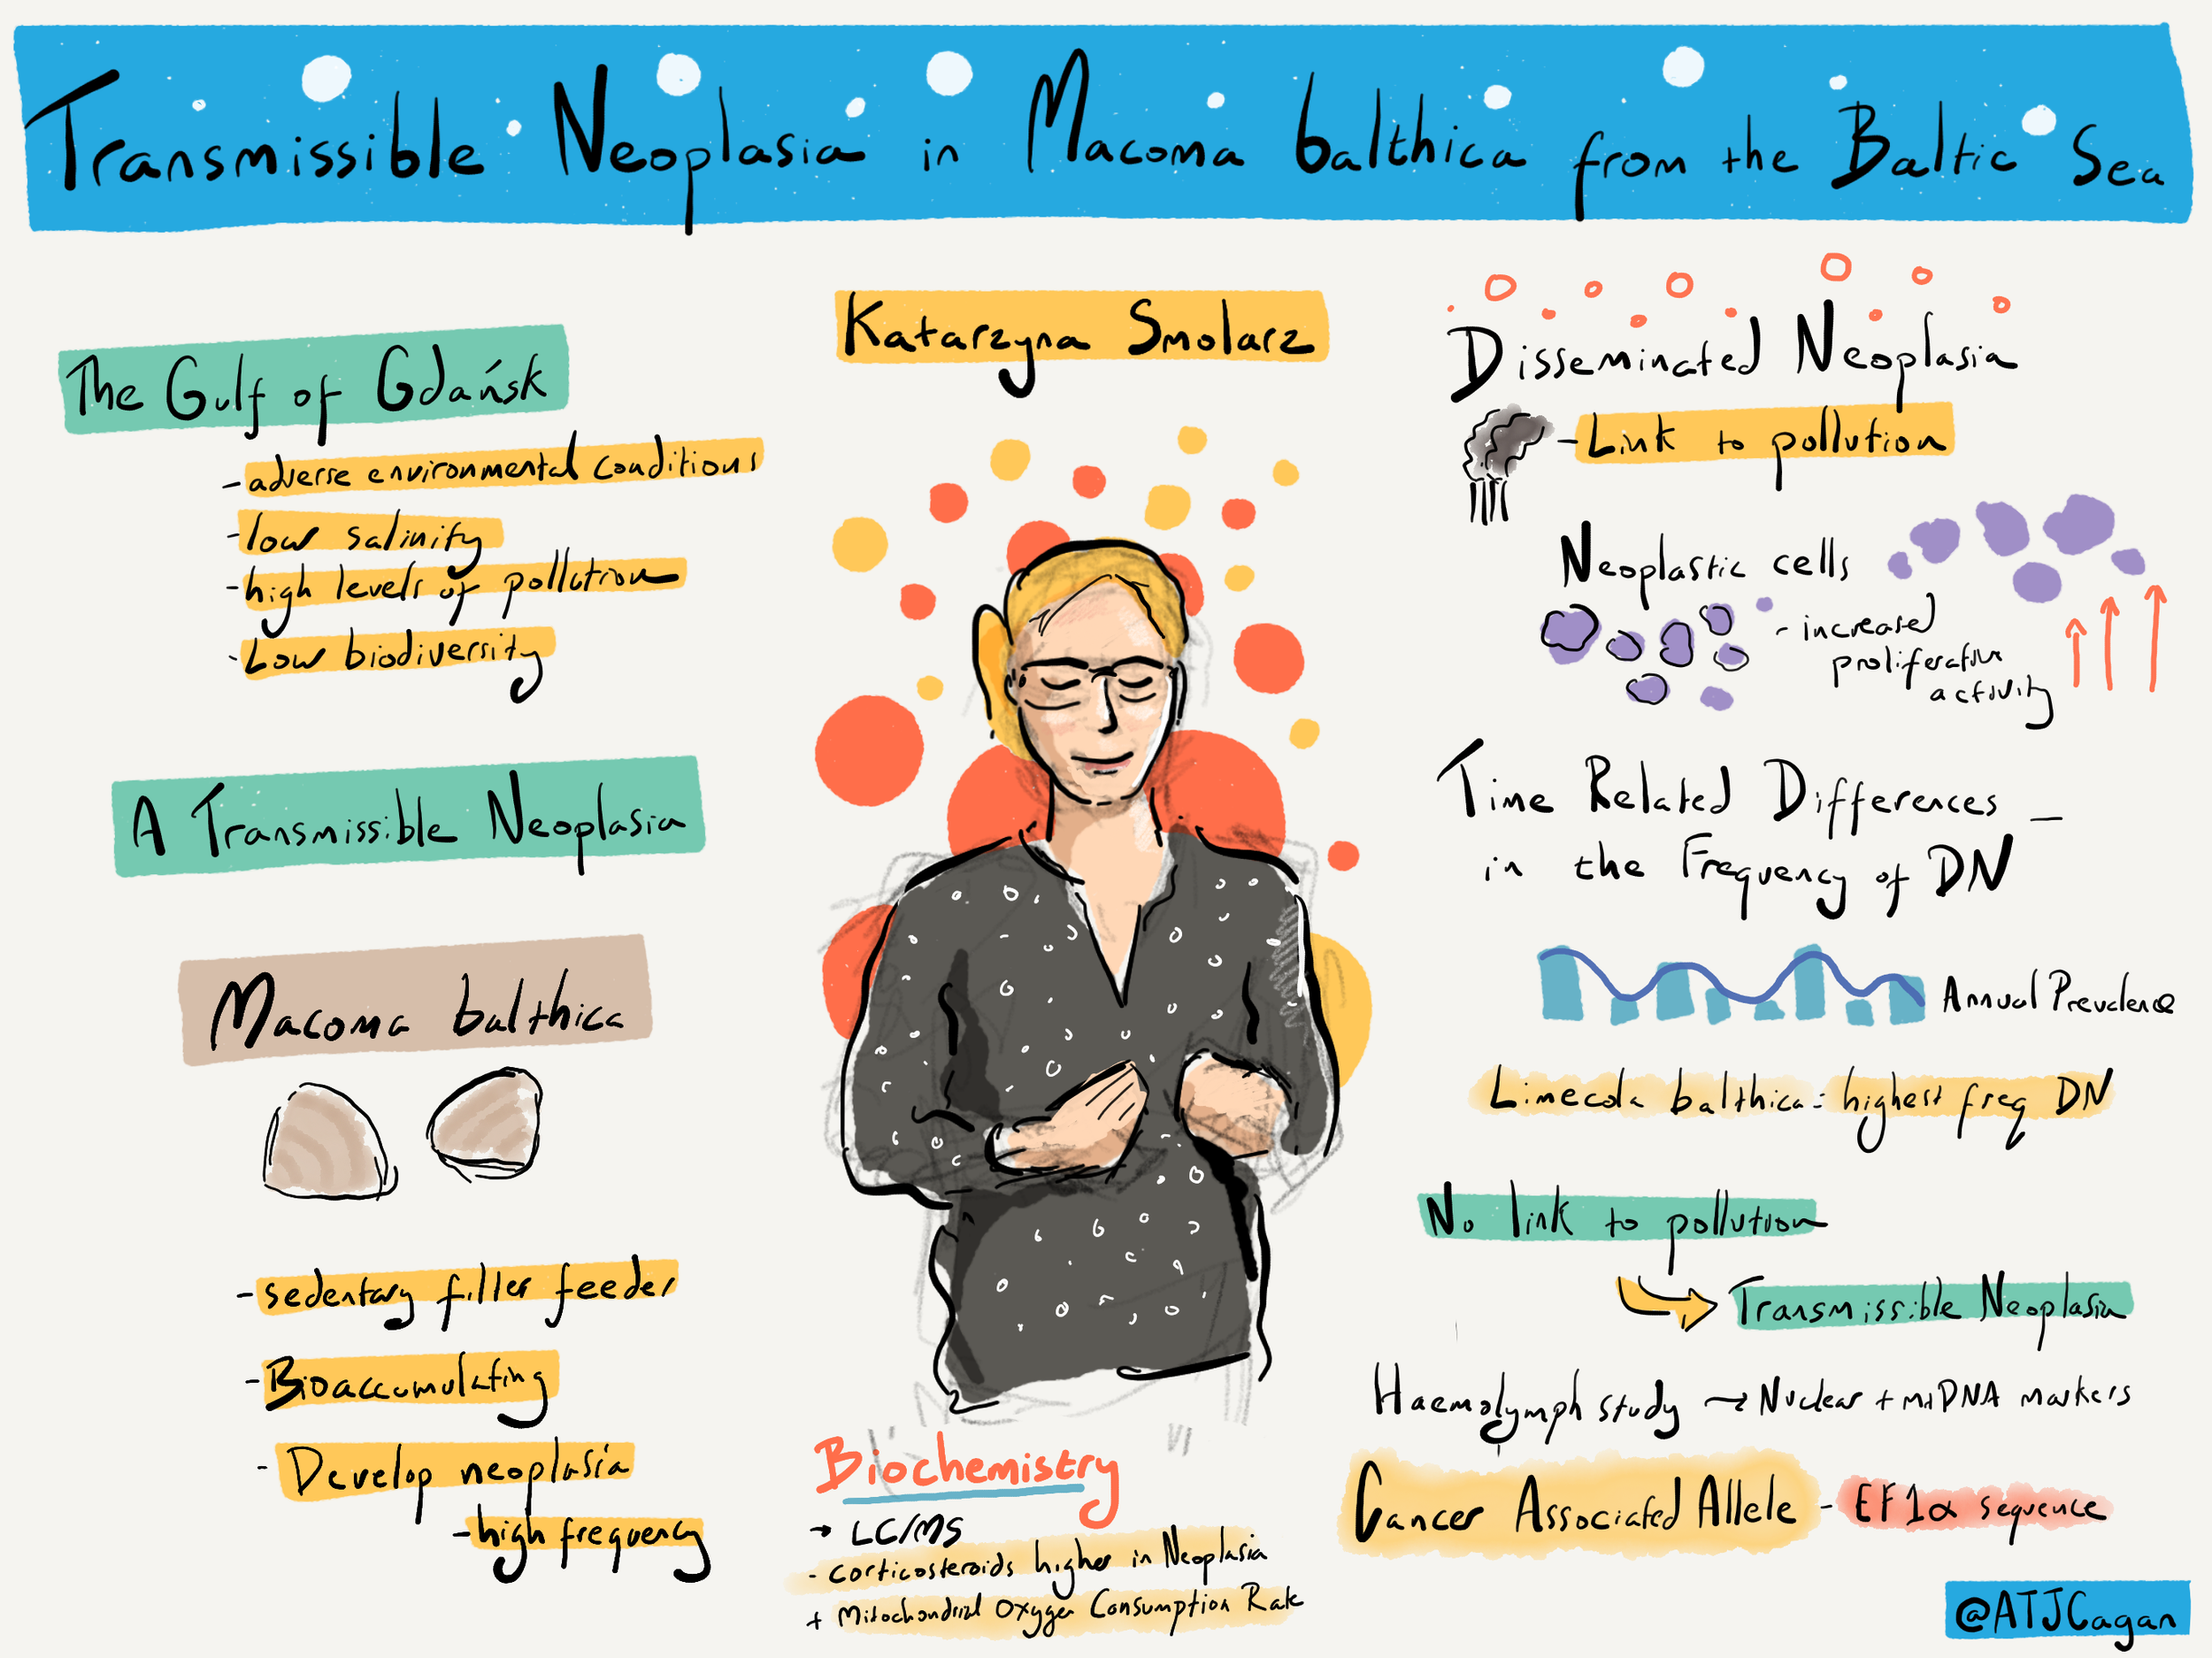 Transmissible Neoplasia in Macoma balthica from the Baltic Sea
The Gulf of Gdańsk
- adverse environmental conditions
- low salinity
- high levels of pollution
- Low biodiversity
A Transmissible Neoplasia
Macoma balthica
- sedentary filler feeder
- Bioaccumulating
- Develop neoplasia
- high frequency
Katarzyna Smolarz
Biochemistry
→ LC/MS
- corticosteroids higher in Neoplasia
+ Mitochondrial Oxygen Consumption Rate
Disseminated Neoplasia
- Link to pollution
Neoplastic cells
- increased
proliferative
activity
Time Related Differences
in the Frequency of DN
Annual Prevalence
Limecola balthica: highest freq DN
No link to pollution
Transmissible Neoplasia
Haemolymph study → Nuclear + mtDNA markers
Cancer Associated Allele - EF1α sequence
@ATJCagan